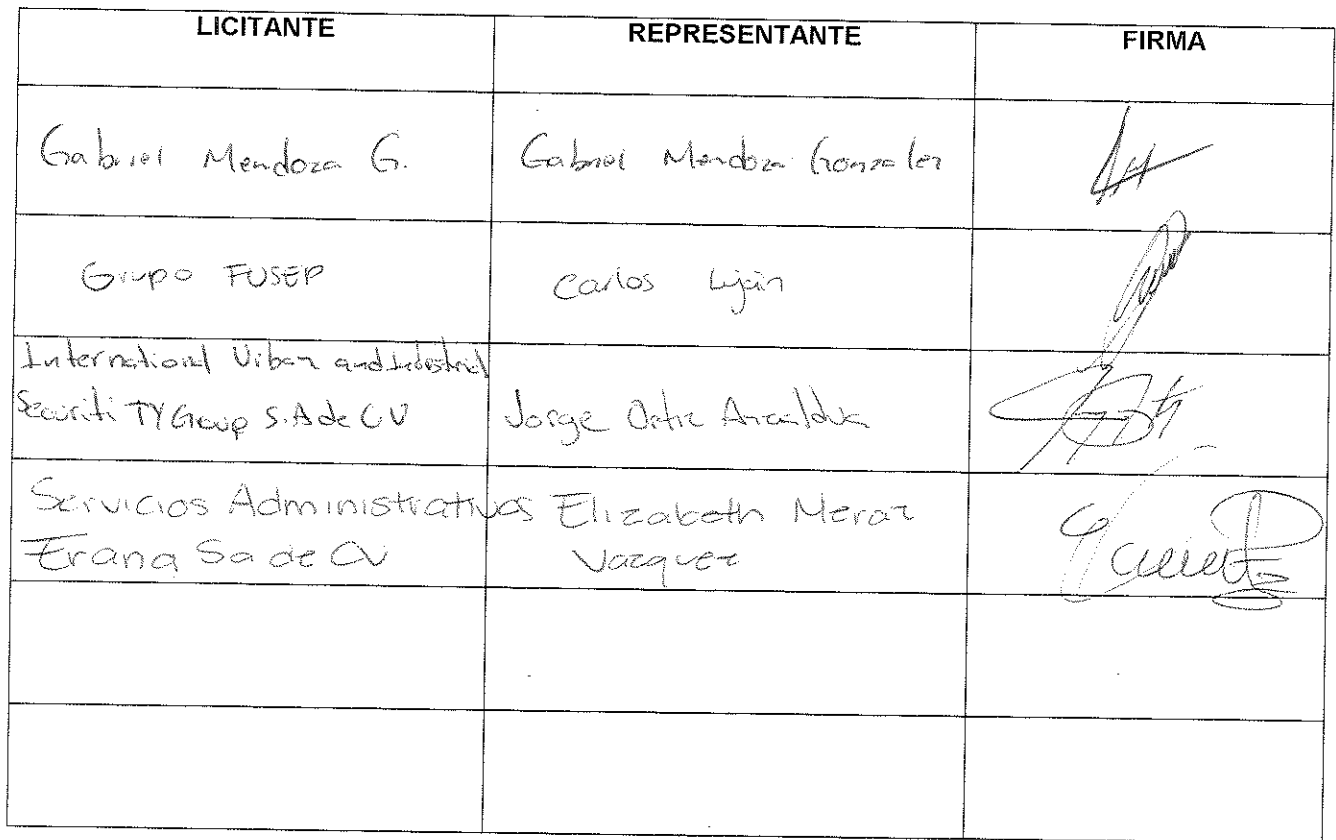 LICITANTE REPRESENTANTE FIRMA
Gabriel Mendoza G. Gabriel Mendoza Gonzalez
Grupo FUSEP Carlos Luján
International Urban and Industrial
Securiti TY Group S.A de C V Jorge Ortiz
Servicios Administrativos Elizabeth Meraz
Erana Sa de CV Vazquez